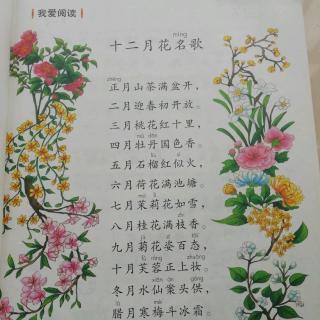 我爱阅读
míng
十二月花名歌
zhēng
正月山茶满盆开，
二月迎春初开放。
三月桃花红十里，
mǔ dān
四月牡丹国色香。
liú sì
五月石榴红似火，
六月荷花满池塘。
mò lì
七月茉莉花如雪，
guì
八月桂花满枝香。
jú zī tài
九月菊花姿百态，
fú róng zhuāng
十月芙蓉正上妆。
xiān àn gòng
冬月水仙案头供，
là
腊月寒梅斗冰霜。